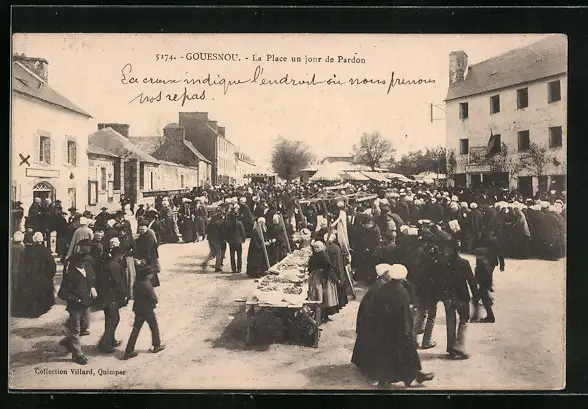 5274. - GOUESNOU. - La Place un jour de Pardon
La croix indique l'endroit où nous prenons
nos repas.
Collection Villard, Quimper